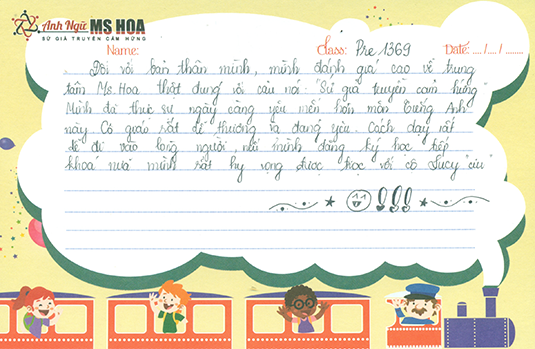 Anh Ngữ MS HOA
SỨ GIẢ TRUYỀN CẢM HỨNG
Name: Class: Pre 1369 Date: ..../..../........
Đối với bản thân mình, mình đánh giá cao về trung
tâm Ms.Hoa thật đúng với câu nói "Sứ giả truyền cảm hứng"
Mình đã thực sự ngày càng yêu mến hơn môn tiếng Anh
này Cô giáo rất dễ thương và đáng yêu. Cách dạy rất
dễ đi vào lòng người, nếu mình đăng ký học tiếp
khoá nữa mình rất hy vọng được học với cô Lucy